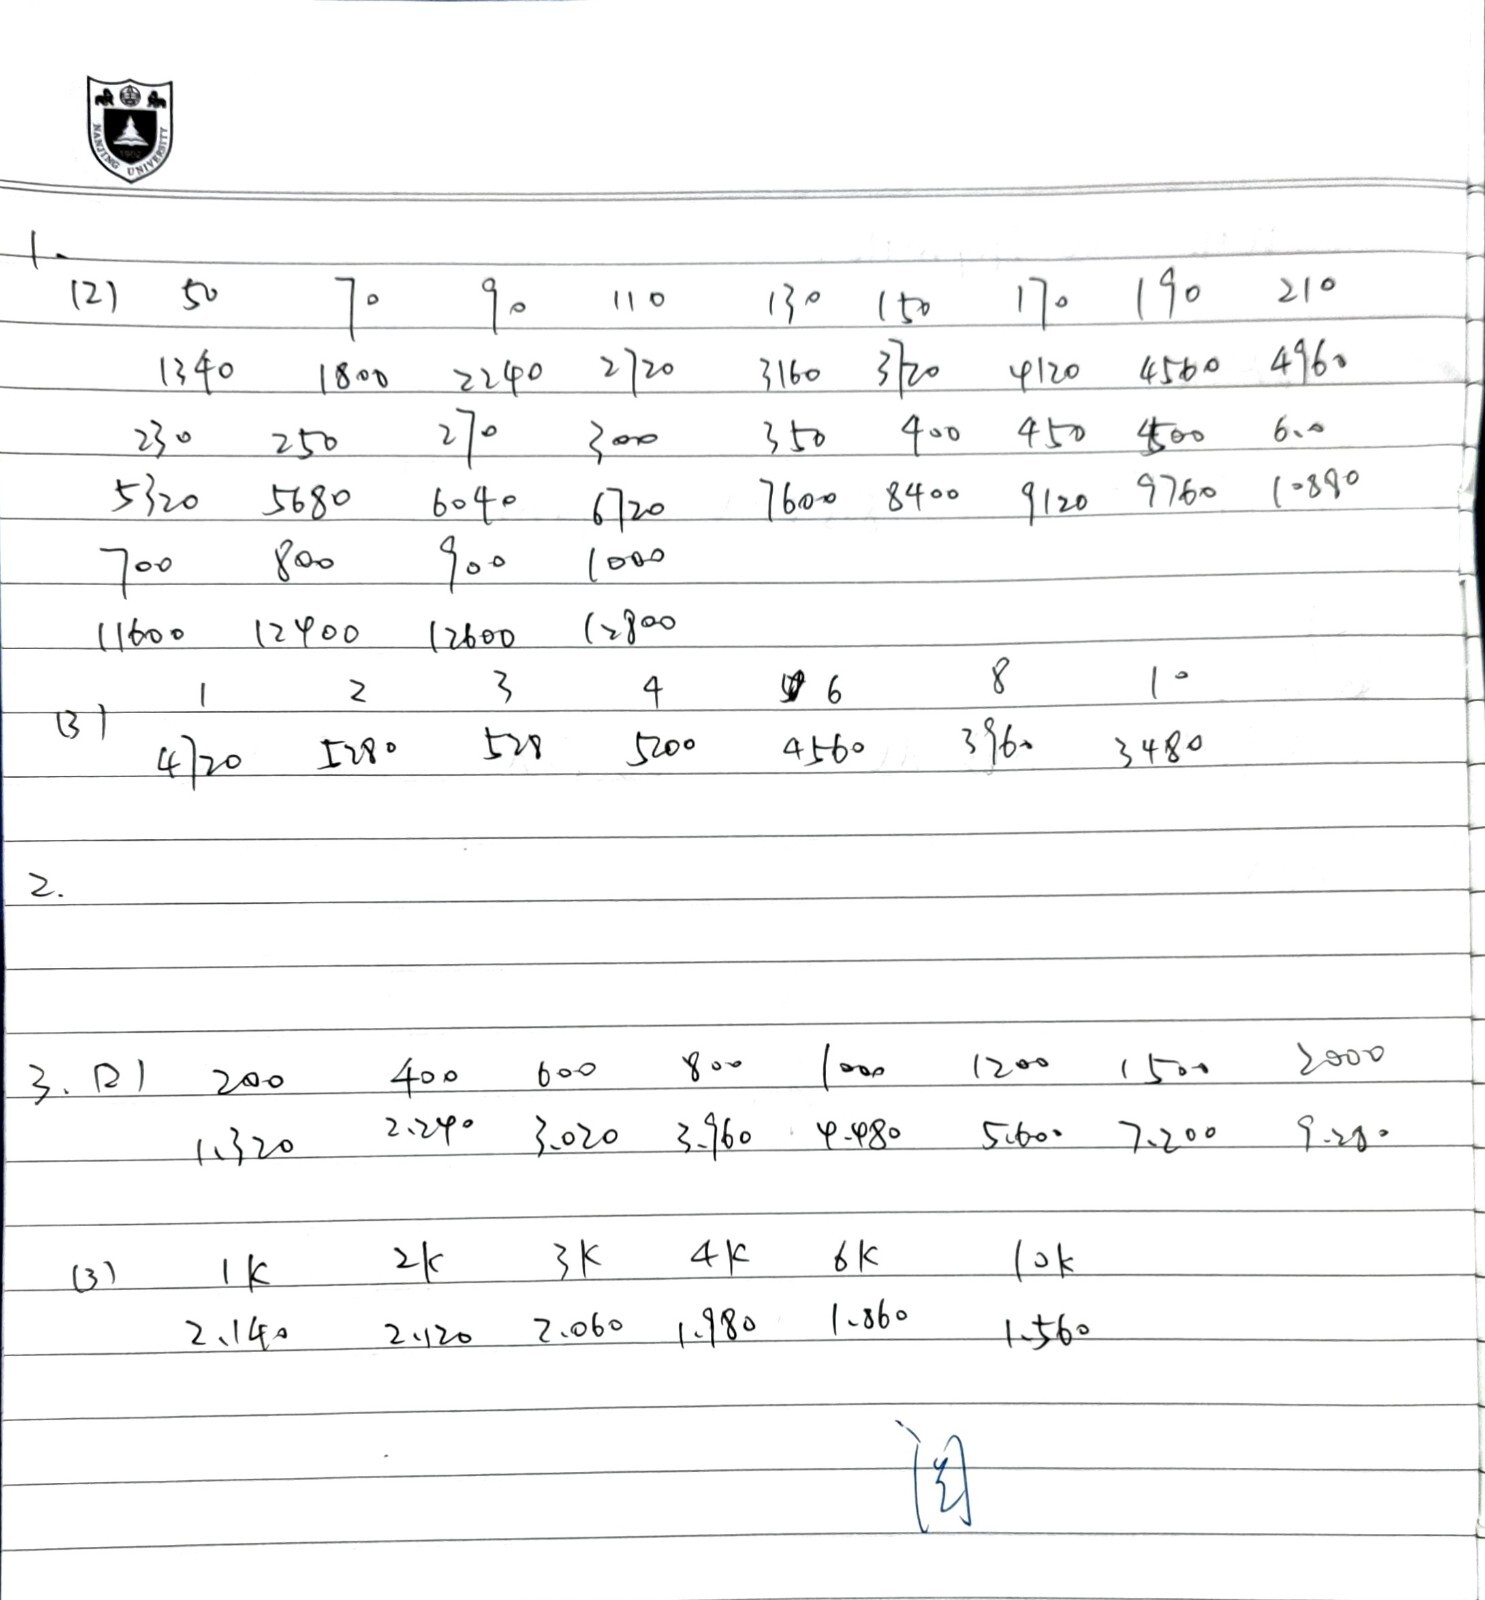 NANJING UNIVERSITY
1902
1.
(2) 50 70 90 110 130 150 170 190 210
1340 1800 2240 2720 3160 3720 4120 4560 4960
230 250 270 300 350 400 450 500 600
5320 5680 6040 6720 7600 8400 9120 9760 10880
700 800 900 1000
11600 12400 12600 12800
(3) 1 2 3 4 6 8 10
4720 5280 528 5200 4560 3960 3480
2.
3. (2) 200 400 600 800 1000 1200 1500 2000
1.320 2.240 3.020 3.960 4.480 5.600 7.200 9.280
(3) 1K 2K 3K 4K 6K 10K
2.140 2.120 2.060 1.980 1.860 1.560